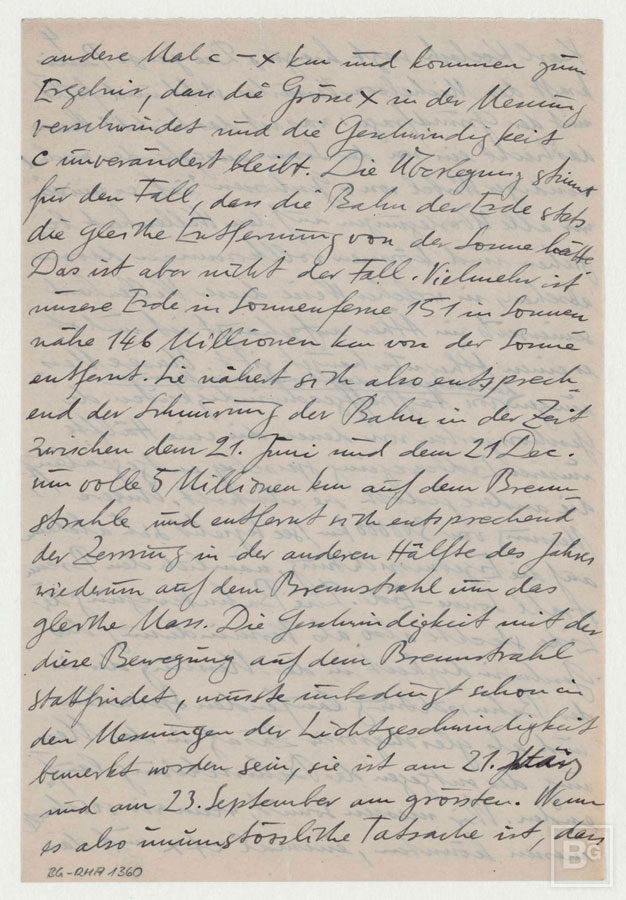 andere Mal c – x km und kommen zum
Ergebnis, dass die Grösse x in der Messung
verschwindet und die Geschwindigkeit
c unverändert bleibt. Die Überlegung stimmt
für den Fall, dass die Bahn der Erde stets
die gleiche Entfernung von der Sonne hätte.
Das ist aber nicht der Fall. Vielmehr ist
unsere Erde in Sonnenferne 151 in Sonnen
nähe 146 Millionen km von der Sonne
entfernt. Sie nähert sich also entsprech-
end der Schnürung der Bahn in der Zeit
zwischen dem 21. Juni und dem 21 Dec.
um volle 5 Millionen km auf dem Brenn-
strahle und entfernt sich entsprechend
der Zerrung in der anderen Hälfte des Jahres
wiederum auf dem Brennstrahl um das
gleiche Mass. Die Geschwindigkeit mit der
diese Bewegung auf dem Brennstrahl
stattfindet, müsste unbedingt schon in
den Messungen der Lichtgeschwindigkeit
bemerkt worden sein, sie ist am 21. März
und am 23. September am grössten. Wenn
es also unumstössliche Tatsache ist, dass
BG-RHA 1360
BG